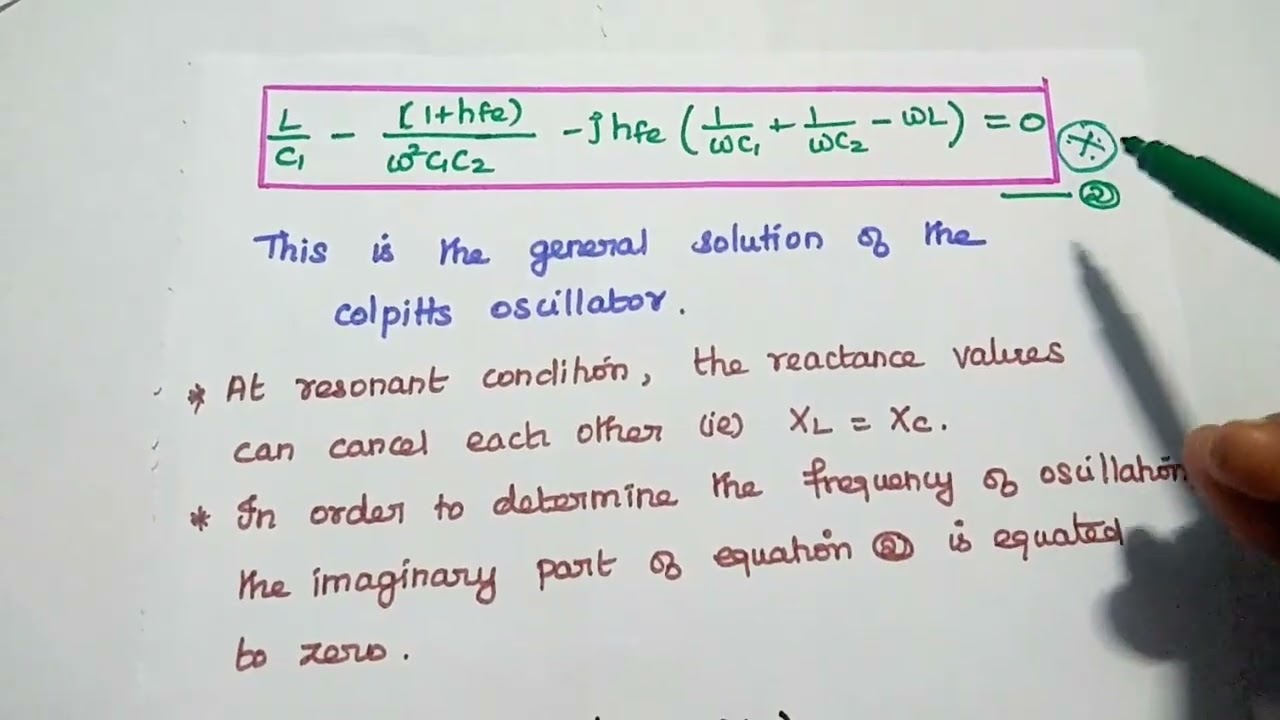 L/C₁ − [1+hfe)/ω²C₁C₂ − jhfe (1/ωC₁ + 1/ωC₂ − ωL) = 0
②
This is the general solution of the
colpitts oscillator.
* At resonant condition, the reactance values
can cancel each other (ie) XL = XC.
* In order to determine the frequency of oscillation
the imaginary part of equation ② is equated
to zero.